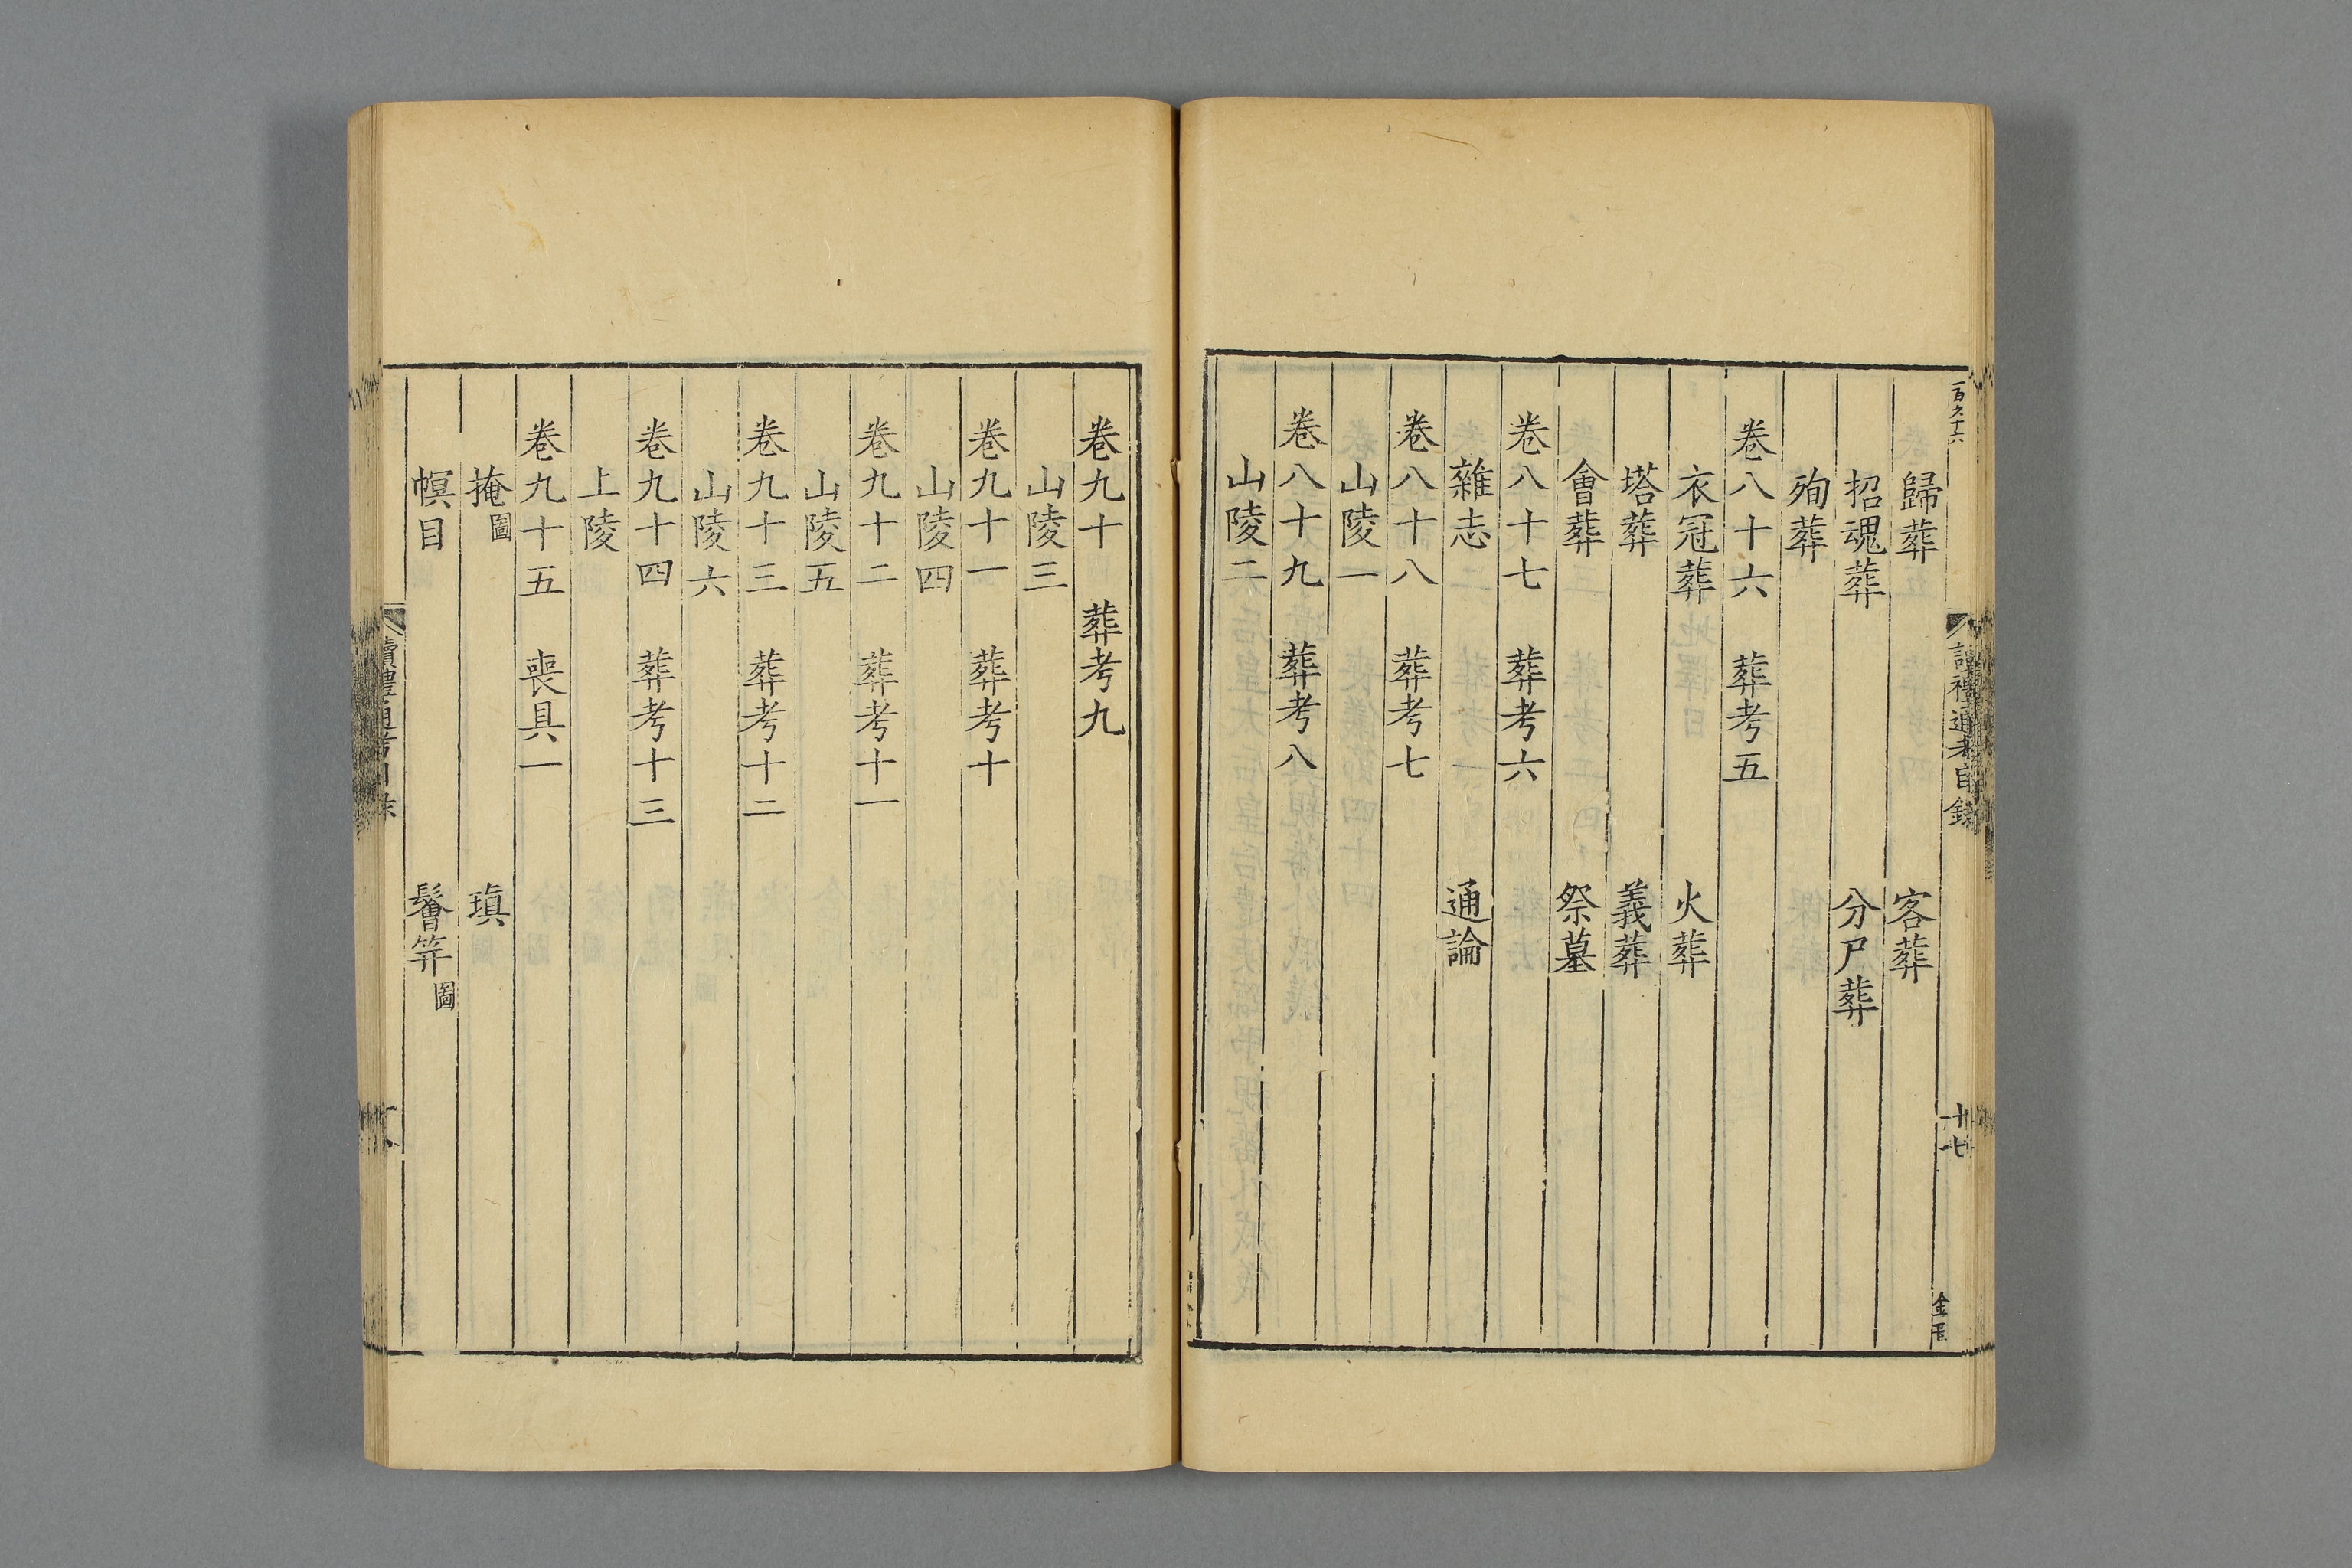 一百九十六
讀禮通考目錄
十七
歸葬 客葬
招魂葬 分尸葬
殉葬
卷八十六 葬考五
衣冠葬 火葬
塔葬 義葬
會葬 祭墓
卷八十七 葬考六
雜志 通論
卷八十八 葬考七
山陵一
卷八十九 葬考八
山陵二
卷九十 葬考九
山陵三
卷九十一 葬考十
山陵四
卷九十二 葬考十一
山陵五
卷九十三 葬考十二
山陵六
卷九十四 葬考十三
上陵
卷九十五 喪具一
掩圖 瑱
幎目 鬠笄圖
讀禮通考目錄